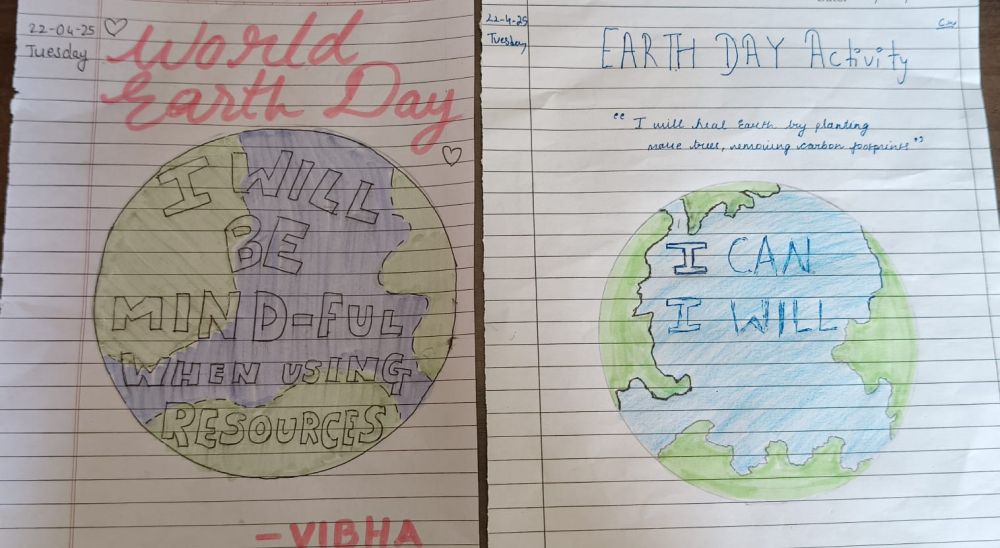 22-04-25
Tuesday
World
Earth Day
I WILL
BE
MIND-FUL
WHEN USING
RESOURCES
-VIBHA
22-4-25
Tuesday
EARTH DAY Activity
"I will heal Earth by planting
more trees, removing carbon footprints"
I CAN
I WILL